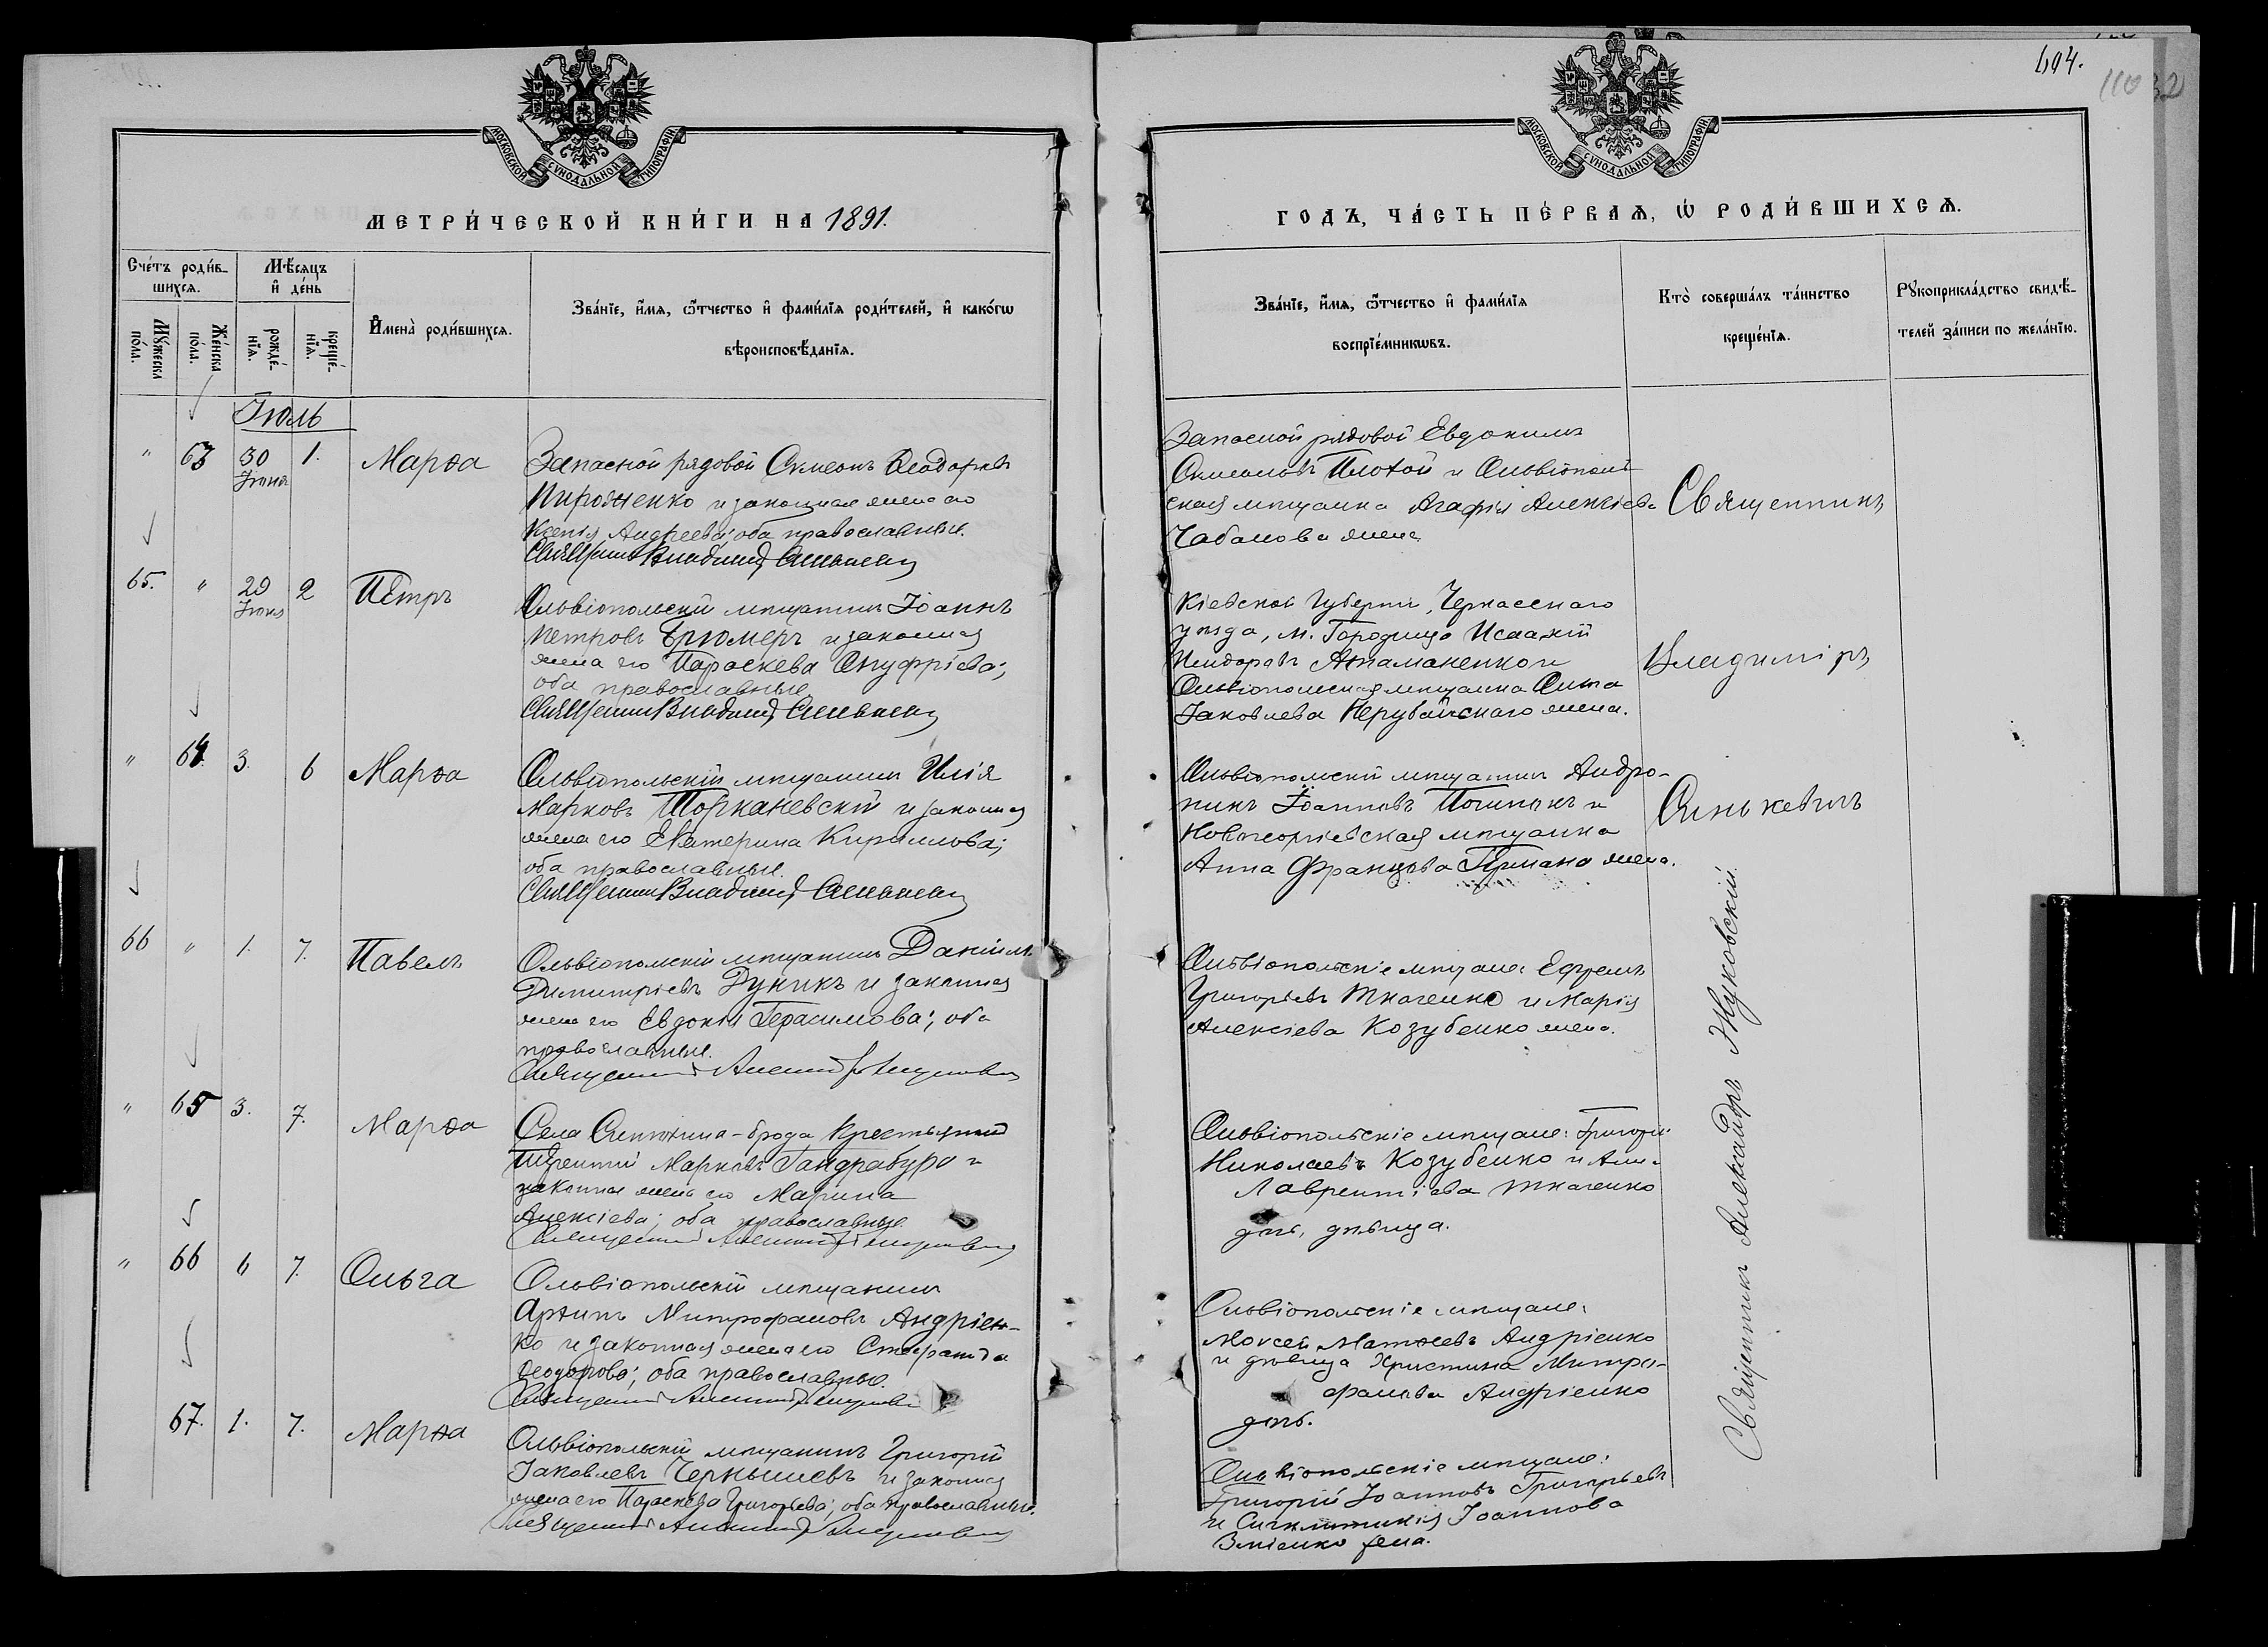 494.
110
32
МОСКОВСКОЙ СѴНОДАЛЬНОЙ ТИПОГРАФІИ
МОСКОВСКОЙ СѴНОДАЛЬНОЙ ТИПОГРАФІИ
МЕТРИ́ЧЕСКОЙ КНИ́ГИ НА 1891.
ГОДЪ, ЧА́СТЬ ПЕ́РВАѦ, Ѡ҆ РОДИ́ВШИХСѦ.
Сче́тъ роди́в-
шихсѧ.
Мѣ́сѧцъ
и҆ де́нь
Мꙋ́жеска
по́ла.
Же́нска
по́ла.
рожде́-
нїѧ.
креще́-
нїѧ.
И҆мена̀ роди́вшихсѧ.
Зва́нїе, и҆́мѧ, ѻ҆́тчество и҆ фамі́лїѧ роди́телей, и҆ како́гѡ
вѣроисповѣ́данїѧ.
Зва́нїе, и҆́мѧ, ѻ҆́тчество и҆ фамі́лїѧ
воспрїе́мникѡвъ.
Кто̀ соверша́лъ та́инство
креще́нїѧ.
Рꙋкоприкла́дство свидѣ́-
телей за́писи по жела́нїю.
Іюль
" 63 30 Іюня 1. Марѳа
Запасной рядовой Симеонъ Ѳеодоровъ
Пироженко и законная жена его
Ксенія Андреева; оба православные.
Священникъ Владиміръ Синькевичъ
Запасной рядовой Евдокимъ
Симеоновъ Плохой и Ольвіополь-
ская мѣщанка Агафія Алексіева
Чабанова жена
Священникъ
65. " 29 Іюня 2 Петръ
Ольвіопольскій мѣщанинъ Іоаннъ
Петровъ Брюмеръ и законная
жена его Параскева Онуфріева;
оба православные
Священникъ Владиміръ Синькевичъ
Кіевской Губерніи, Черкасскаго
уѣзда, м. Городища Исаакій
Исидоровъ Атаманенко и
Ольвіопольская мѣщанка
Іаковлева жена.
Владиміръ
" 64. 3. 6 Марѳа
Ольвіопольскій мѣщанинъ Илія
Марковъ Торкановскій и законная
жена его Екатерина Кириллова;
оба православные.
Священникъ Владиміръ Синькевичъ
Ольвіопольскій мѣщанинъ Андро-
никъ Іоанновъ и
Новогеоргіевская мѣщанка
Анна Францова Германа жена.
Синькевичъ
66 " 1. 7. Павелъ
Ольвіопольскій мѣщанинъ Даніилъ
Димитріевъ Дуникъ и законная
жена его Евдокія Герасимова; оба
православные.
Священникъ Александръ Жуковскій
Ольвіопольскіе мѣщане: Ефремъ
Григорьевъ Ткаченко и Марія
Алексіева Козубенко жена.
" 65 3. 7. Марѳа
Села Синюхина-брода крестьянинъ
Терентій Марковъ Гандрабура и
законная жена его Марина
Алексіева; оба православные
Священникъ Александръ Жуковскій
Ольвіопольскіе мѣщане: Григорій
Николаевъ Козубенко и Анна
Лаврентіева Ткаченко
дочь, дѣвица.
" 66 6 7. Ольга
Ольвіопольскій мѣщанинъ
Архипъ Митрофановъ Андріен-
ко и законная жена его Стефанида
Ѳеодорова; оба православные.
Священникъ Александръ Жуковскій
Ольвіопольскіе мѣщане:
Моисей Матѳеевъ Андріенко
и дѣвица Христина Митро-
фанова Андріенко
дочь.
67. 1. 7. Марѳа
Ольвіопольскій мѣщанинъ Григорій
Іаковлевъ Чернышевъ и законная
жена его Параскева Григорьева; оба православные.
Священникъ Александръ Жуковскій
Ольвіопольскіе мѣщане:
Григорій Іоанновъ Григорьевъ
и Сигклитикія Іоаннова
Зміенко жена.
Священникъ Александръ Жуковскій